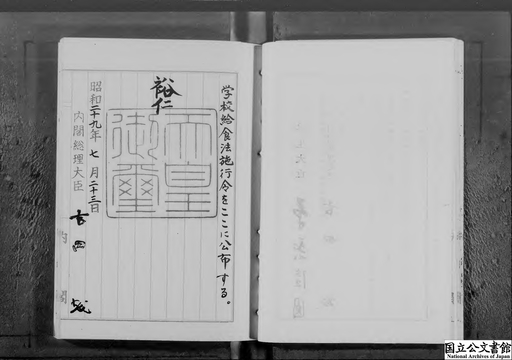 学校給食法施行令をここに公布する。
裕仁
天皇御璽
昭和二十九年七月二十三日
内閣総理大臣 吉田茂
内閣
国立公文書館
National Archives of Japan